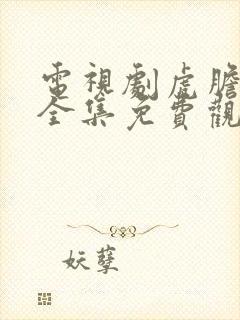 電視劇虎膽
全集免費觀
妖孽